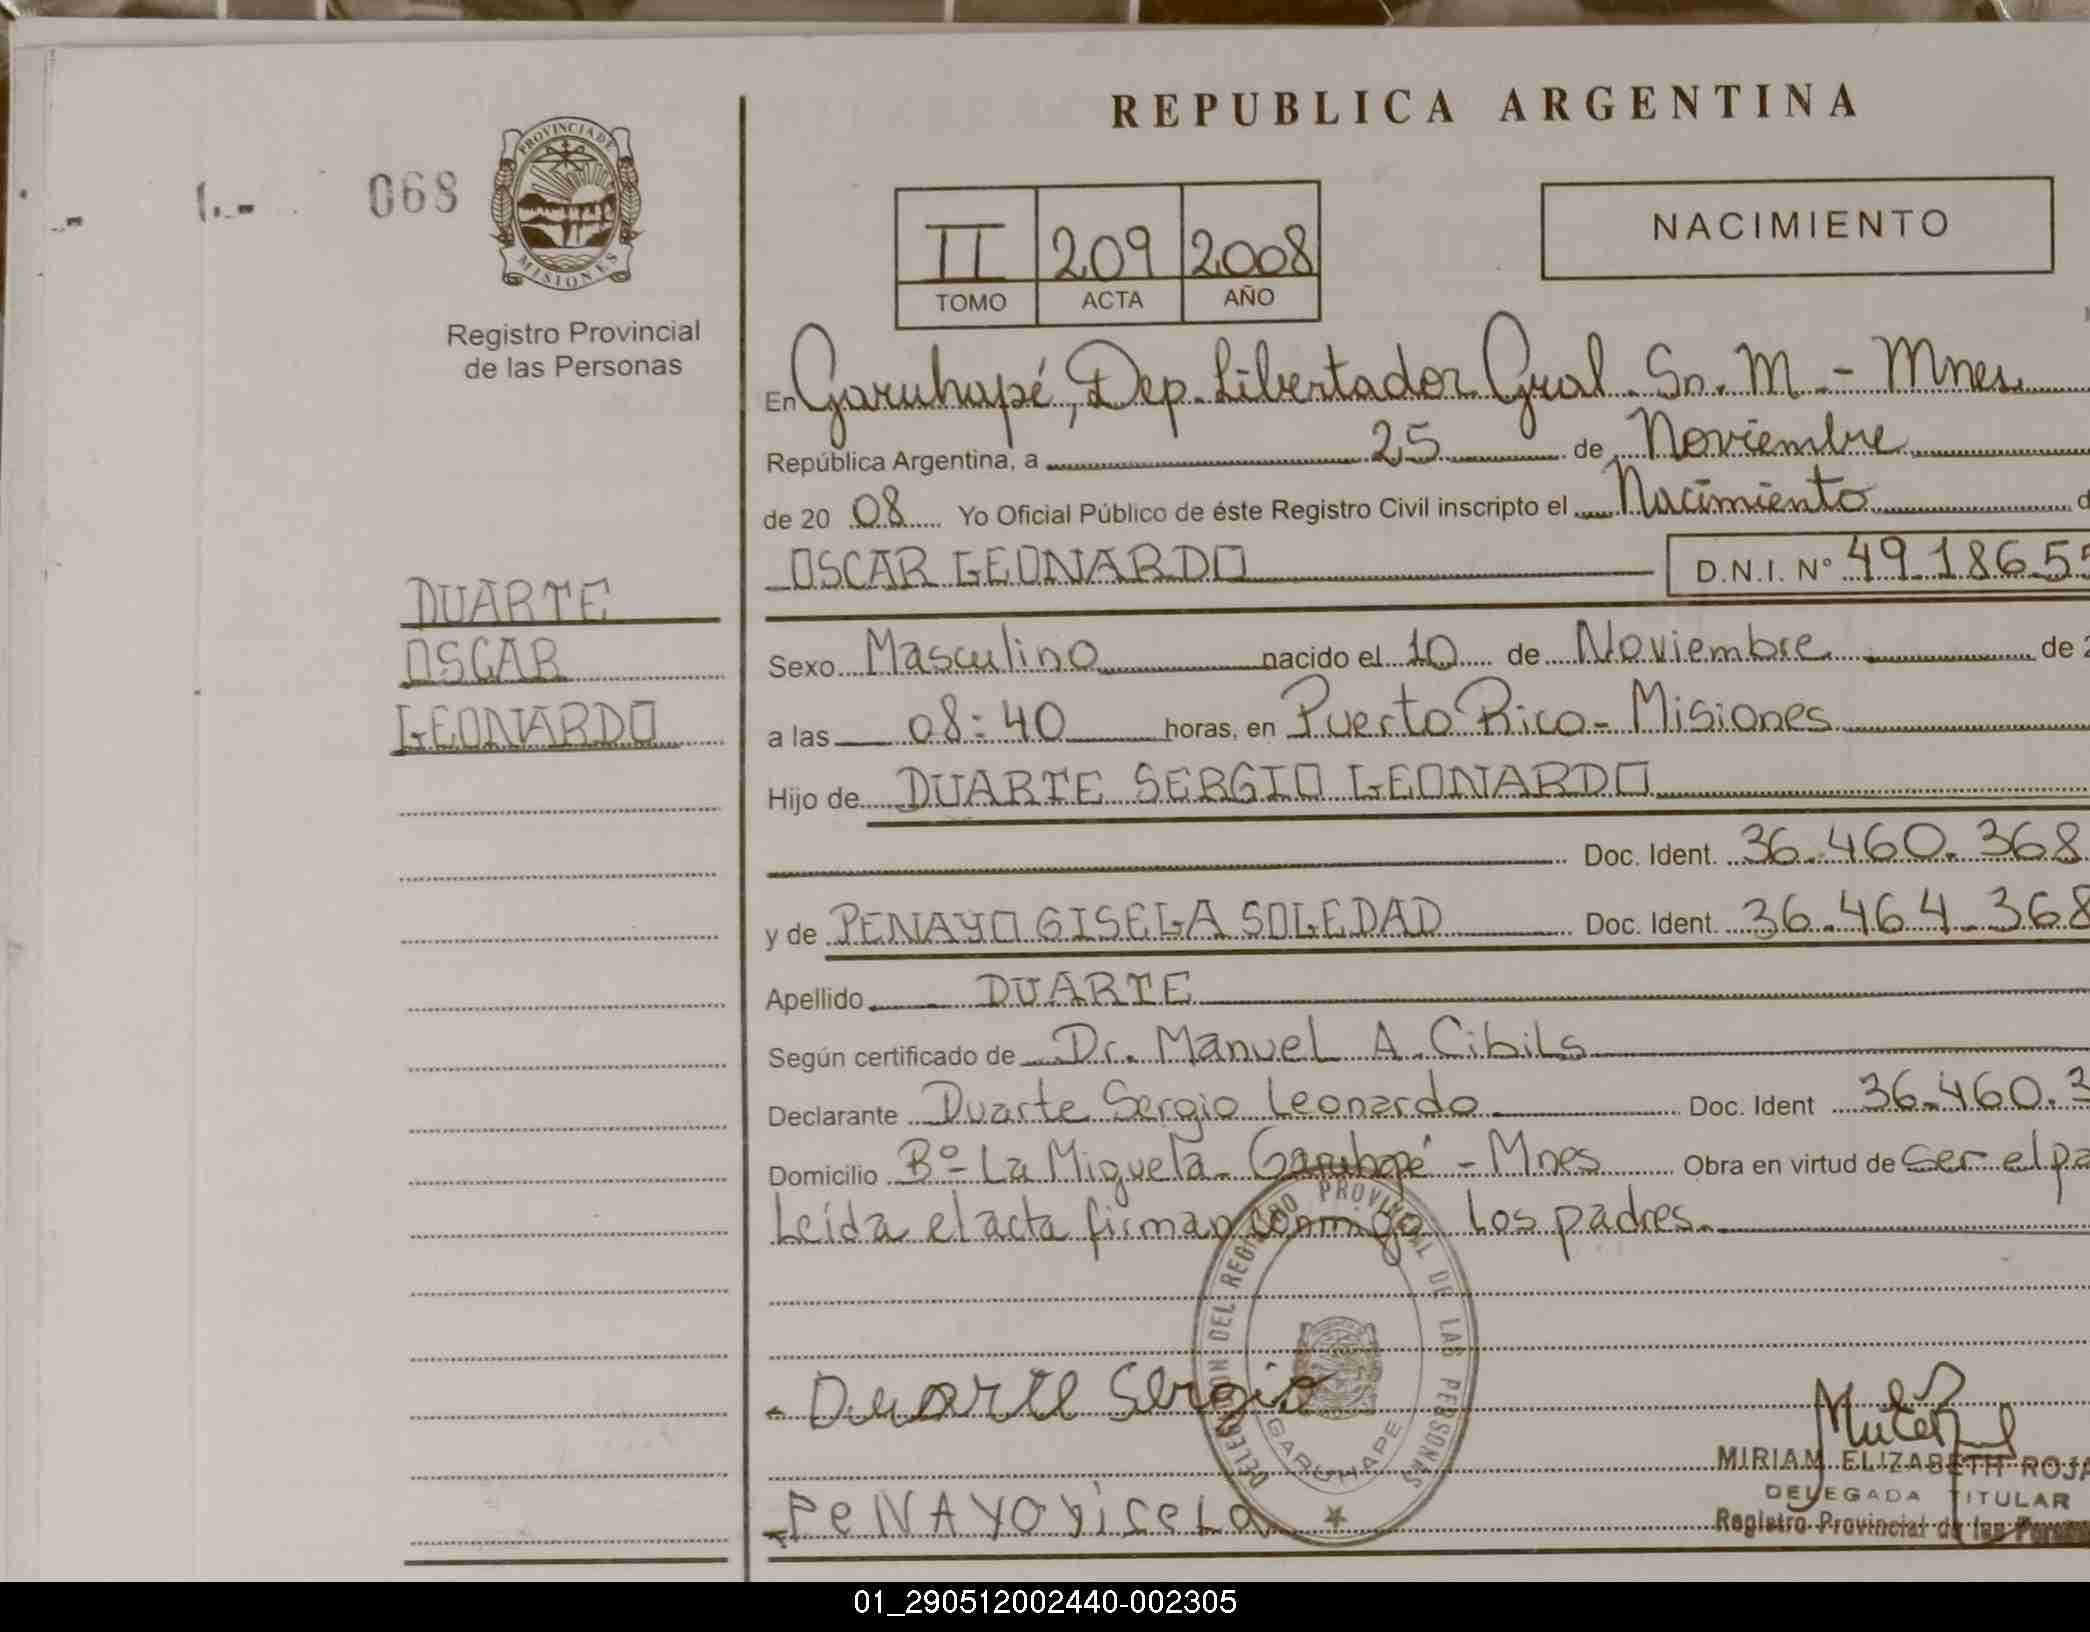 REPUBLICA ARGENTINA
068
PROVINCIA DE MISIONES
Registro Provincial
de las Personas
II 209 2008
TOMO ACTA AÑO
NACIMIENTO
En Garuhapé, Dep. Libertador Gral. Sn. M. - Mnes
República Argentina, a 25 de Noviembre
de 20 08 Yo Oficial Público de éste Registro Civil inscripto el Nacimiento
OSCAR LEONARDO D.N.I. Nº 49.1865
DUARTE
OSCAR
LEONARDO
Sexo Masculino nacido el 10 de Noviembre de 2
a las 08:40 horas, en Puerto Rico - Misiones
Hijo de DUARTE SERGIO LEONARDO
Doc. Ident. 36.460.368
y de PENAYO GISELA SOLEDAD Doc. Ident. 36.464.368
Apellido DUARTE
Según certificado de Dr. Manuel A. Cibils
Declarante Duarte Sergio Leonardo Doc. Ident 36.460.3
Domicilio Bº La Miguela - Garuhapé - Mnes Obra en virtud de ser el pa
Leída el acta firman conmigo los padres.
DELEGACION DEL REGISTRO PROVINCIAL DE LAS PERSONAS
GARUHAPE
Duarte Sergio
MIRIAM ELIZABETH ROJA
DELEGADA TITULAR
Registro Provincial de las
PeNAYO
01_290512002440-002305